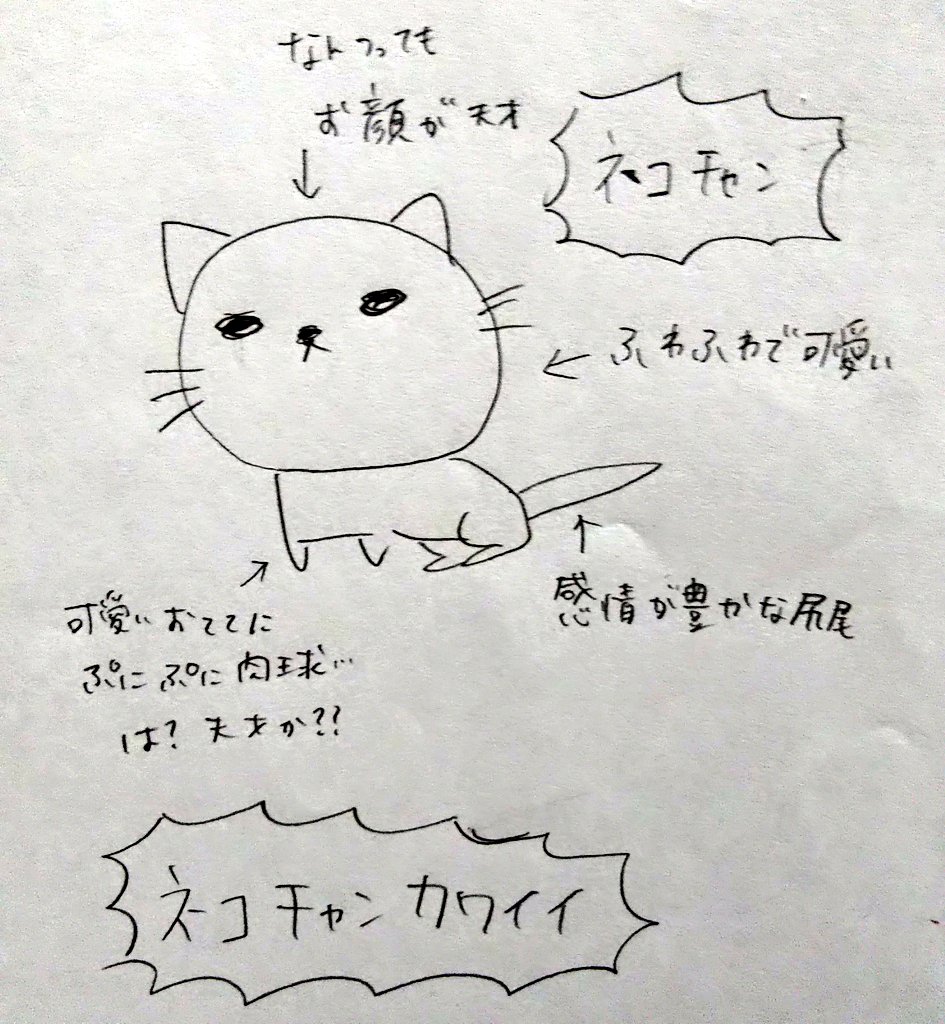 なんつっても
お顔が天才
ネコチャン
ふわふわで可愛い
感情が豊かな尻尾
可愛いおててに
ぷにぷに肉球…
は？天才か??
ネコチャンカワイイ